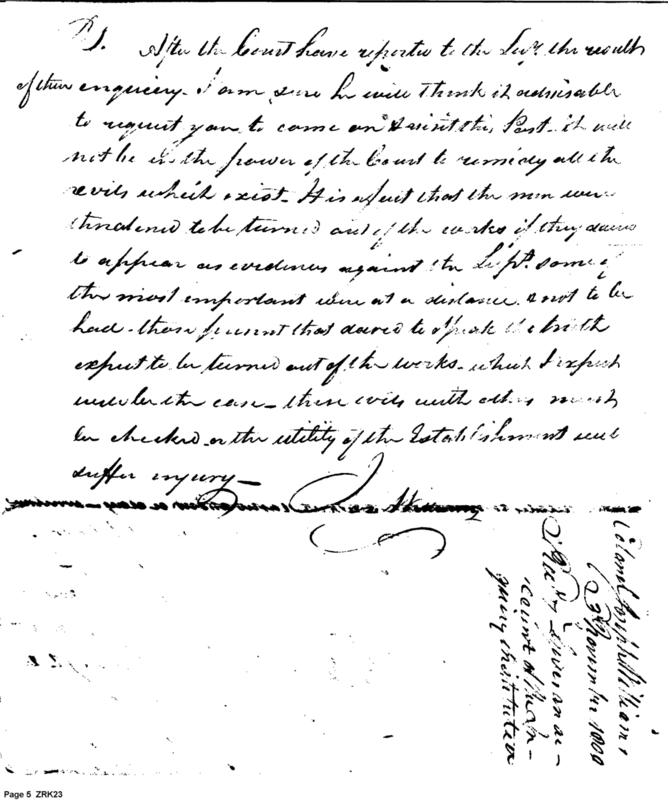 PS. After the Court have reported to the Secy. the result
of their enquiery - I am sure he will think it adviseable
to request you to come on & visit this Post - it will
not be in the power of the Court to remidy all the
evils which exist - It is a fact that the men were
threatened to be turned out of the works if they dared
to appear as evidences against the Supt. some of
the most important were at a distance & not to be
had - those present that dared to speak the truth
expect to be turned out of the works - which I expect
will be the case - these evils with others must
be checked or the utility of the Establishment will
suffer injury -
Colonel Joseph Williams
November 1800
Page 5 ZRK23